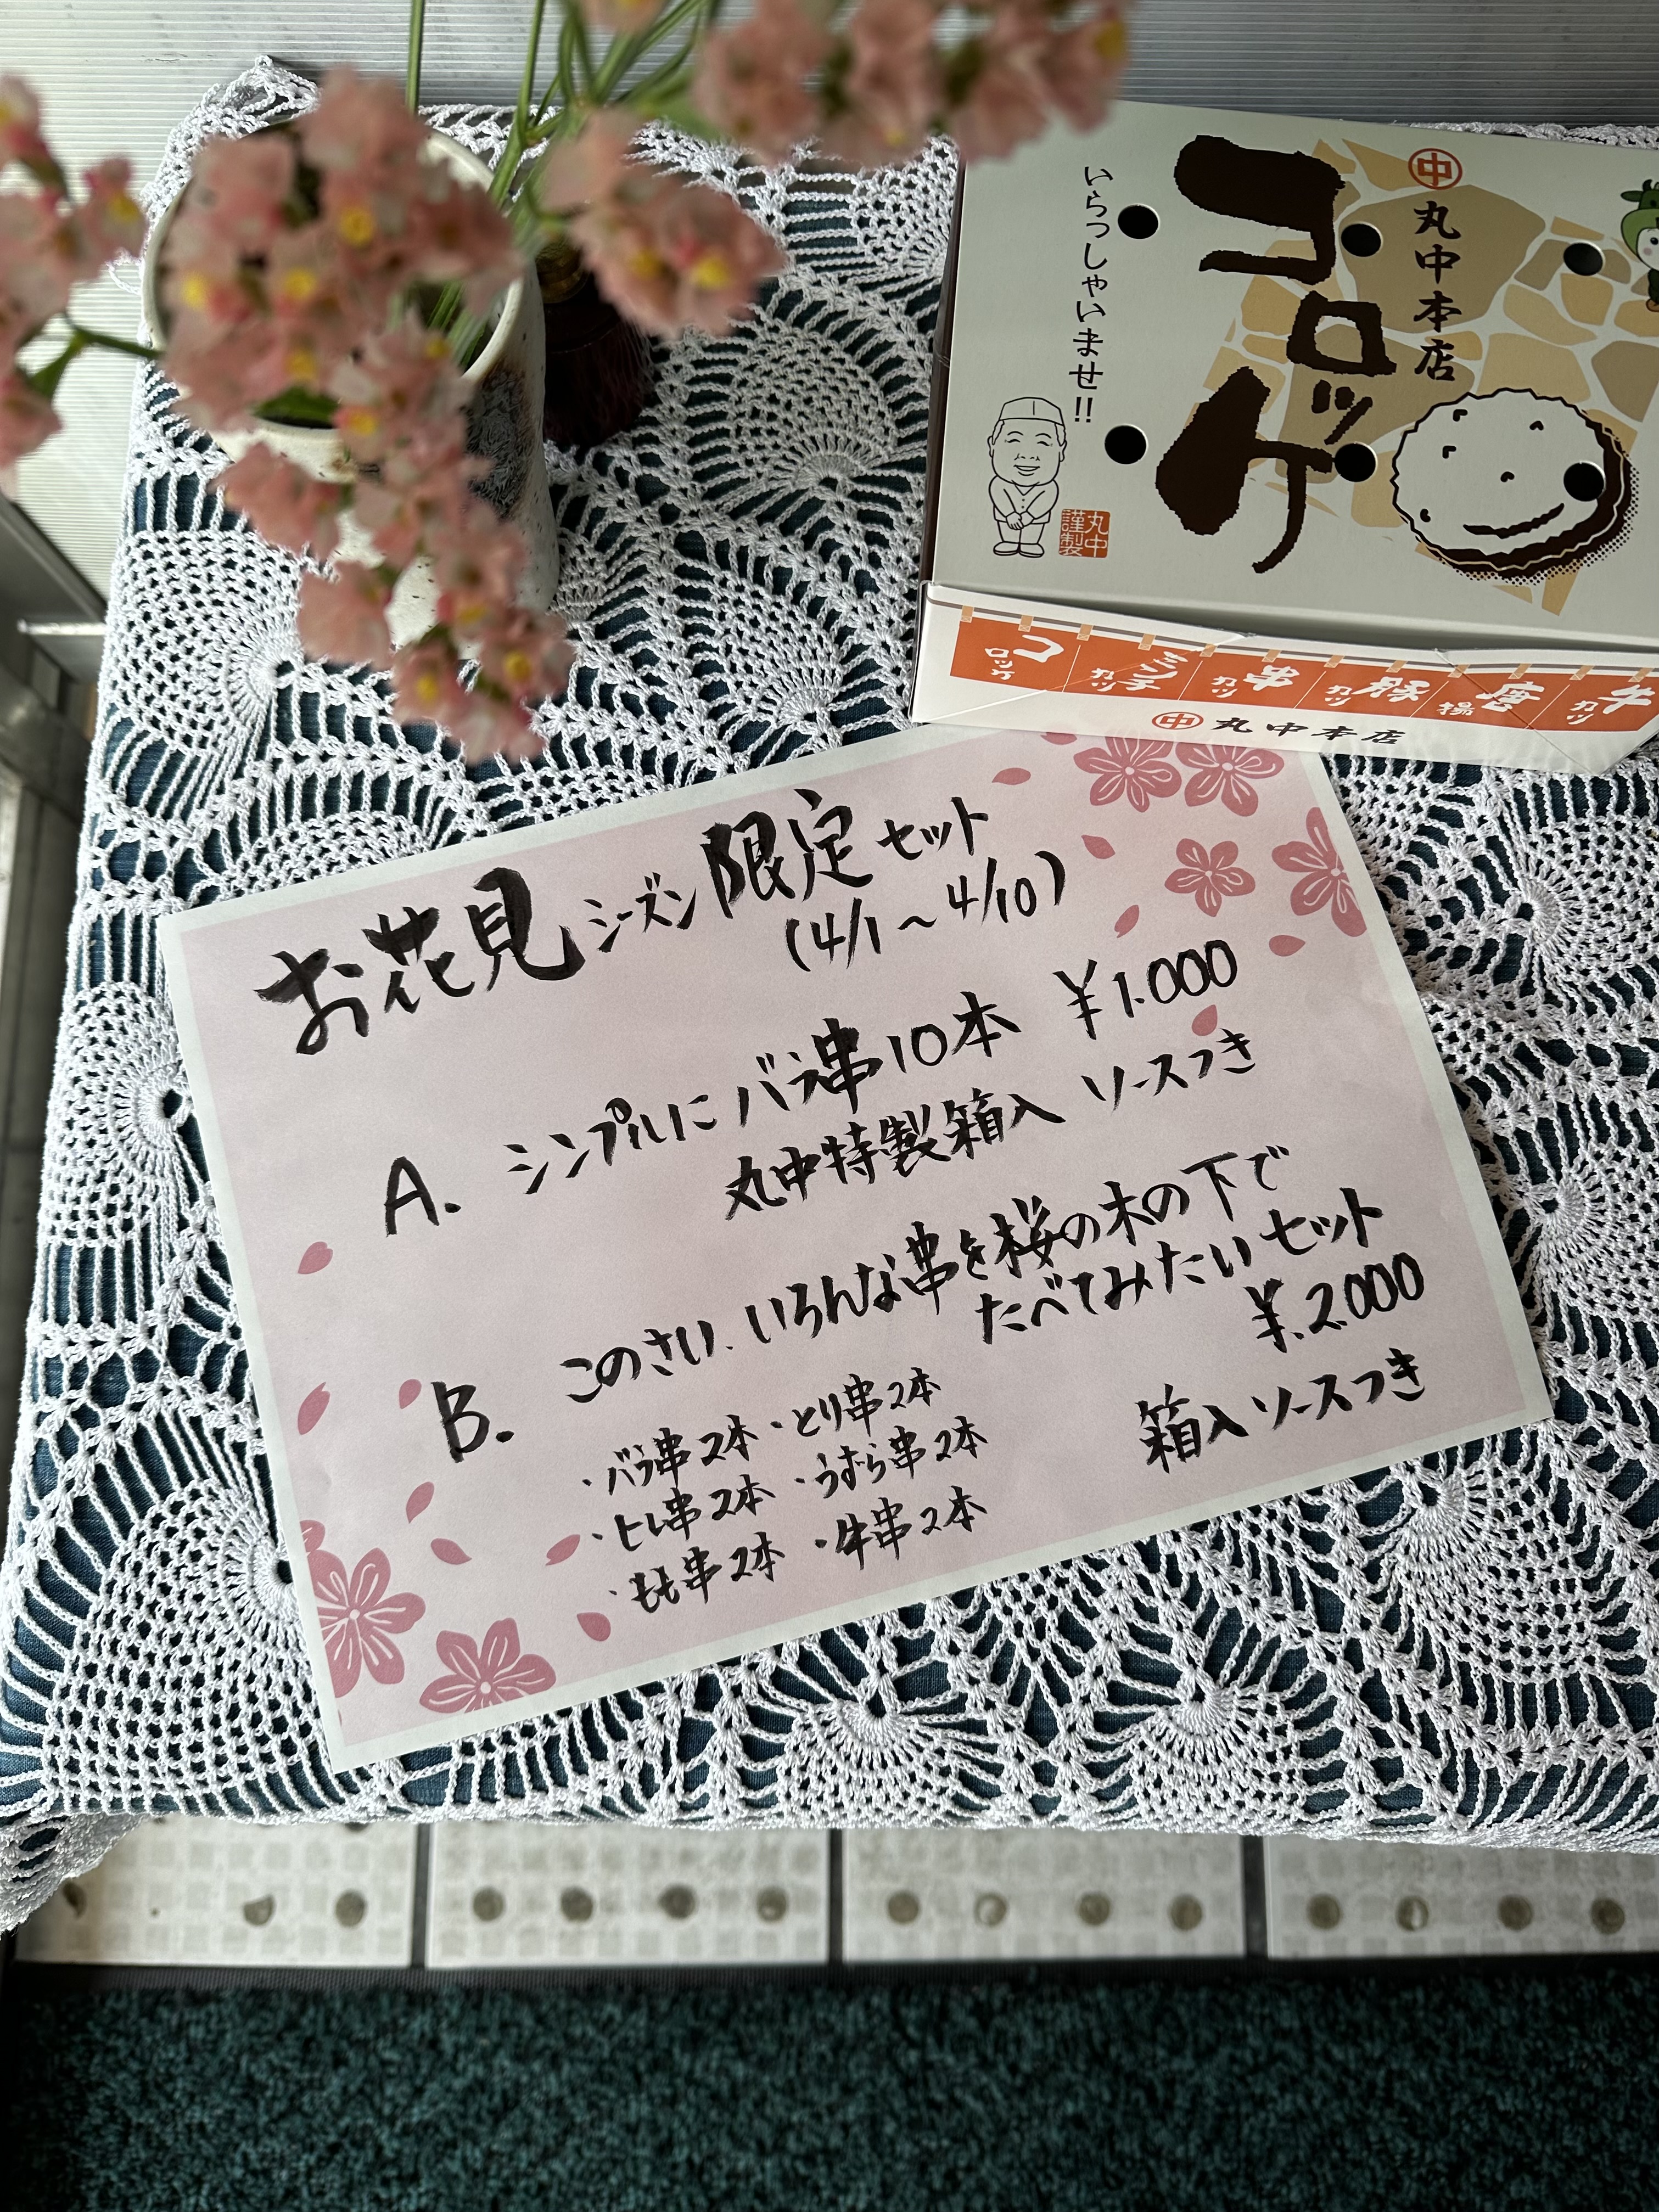 いらっしゃいませ!!
コロッケ
中
丸中本店
丸中
謹製
コロッケ
ミンチカツ
串カツ
豚カツ
唐揚
牛カツ
中 丸中本店
お花見シーズン限定セット
(4/1~4/10)
A. シンプルにバラ串10本 ¥1.000
丸中特製箱入 ソースつき
B. このさい、いろんな串を桜の木の下で
たべてみたいセット
¥.2.000
・バラ串2本 ・とり串2本
・ヒレ串2本 ・うずら串2本
・もも串2本 ・牛串2本
箱入 ソースつき